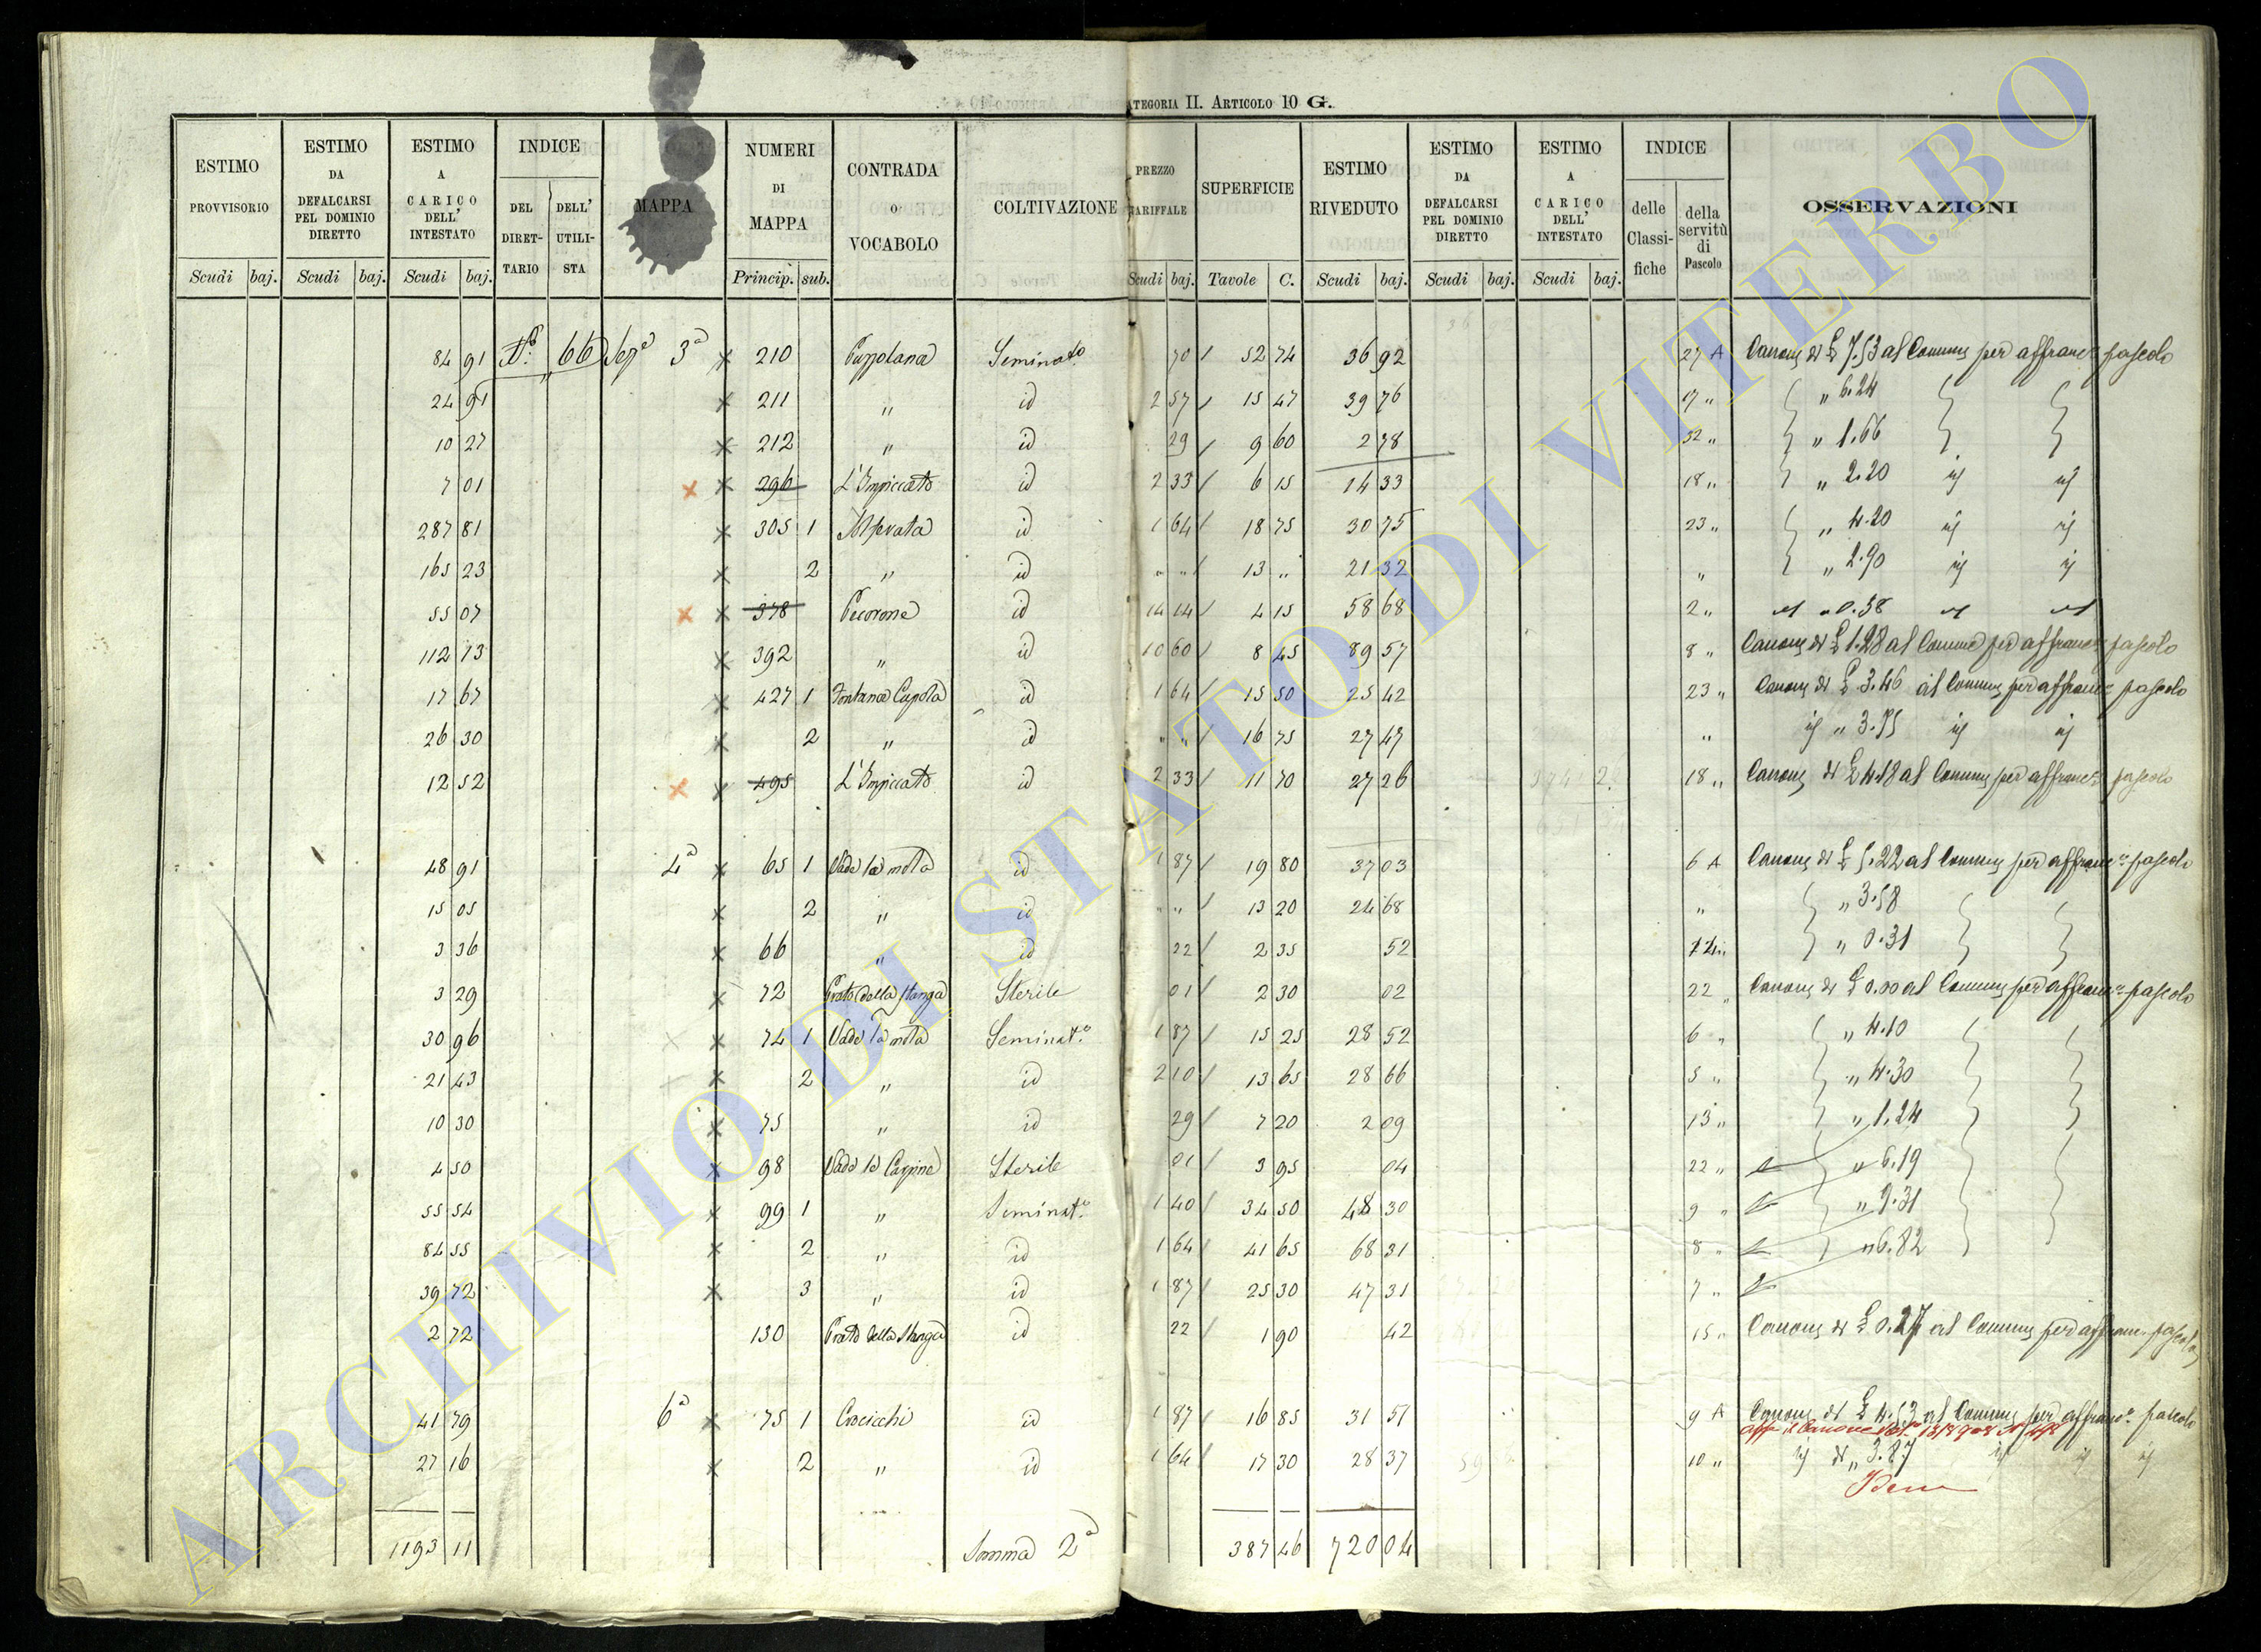 CATEGORIA II. ARTICOLO 10 G.
ESTIMO PROVVISORIO Scudi baj.
ESTIMO DA DEFALCARSI PEL DOMINIO DIRETTO Scudi baj.
ESTIMO A CARICO DELL' INTESTATO Scudi baj.
INDICE DEL DIRETTARIO DELL' UTILISTA
MAPPA
NUMERI DI MAPPA Princip. sub.
CONTRADA O VOCABOLO
COLTIVAZIONE
PREZZO TARIFFALE Scudi baj.
SUPERFICIE Tavole C.
ESTIMO RIVEDUTO Scudi baj.
ESTIMO DA DEFALCARSI PEL DOMINIO DIRETTO Scudi baj.
ESTIMO A CARICO DELL' INTESTATO Scudi baj.
INDICE delle Classifiche della servitù di Pascolo
OSSERVAZIONI
84 91 N° 66 Sezª 3ª × 210 Puzzolana Seminatº 70 52 74 36 92 27 A Canone di £ 7.53 al Comune per affranc. pascolo
24 91 × 211 " id 2 57 15 47 39 76 17 " " 6.24
10 27 × 212 " id 29 9 60 2 78 32 " " 1.66
7 01 × × 296 L'Impiccato id 2 33 6 15 14 33 18 " " 2.20 id id
287 81 × 305 1 id 1 64 18 75 30 75 23 " " 4.20 id id
165 23 × 2 " id " " 13 " 21 32 " " 2.90 id id
55 07 × × 378 Pecorone id 14 14 4 15 58 68 2 " id " 0.38 id id
112 73 × 392 " id 10 60 8 45 89 57 8 " Canone di £ 1.28 al Comune per affranc. pascolo
17 67 × 427 1 Fontana Cupola id 1 64 15 50 25 42 23 " Canone di £ 3.46 al Comune per affranc. pascolo
26 30 × 2 " id " " 16 75 27 47 " id " 3.75 id id
12 52 × × 495 L'Impiccato id 2 33 11 70 27 26 18 " Canone di £ 4.18 al Comune per affranc. pascolo
48 91 4ª × 65 1 Vado la mola id 1 87 19 80 37 03 6 A Canone di £ 5.22 al Comune per affranc. pascolo
15 05 × 2 " id " " 13 20 24 68 " " 3.58
3 36 × 66 " id 22 2 35 52 " 0.31
3 29 × 72 Prato della Stanga Sterile 01 2 30 02 22 " Canone di £ 0.00 al Comune per affranc. pascolo
30 96 × 74 1 Vado la mola Seminatº 1 87 15 25 28 52 6 " " 4.10
21 43 × 2 " id 2 10 13 65 28 66 5 " " 4.30
10 30 × 75 " id 29 7 20 2 09 13 " " 1.24
4 50 × 98 Vado la Carpine Sterile 01 3 95 04 22 " " 6.19
55 54 × 99 1 " Seminatº 1 40 34 50 48 30 9 " " 9.31
84 55 × 2 " id 1 64 41 65 68 31 8 " " 6.82
39 72 × 3 " id 1 87 25 30 47 31 7 "
2 72 130 Prato della Stanga id 22 1 90 42 15 " Canone di £ 0.27 al Comune per affranc. pascolo
41 79 6ª × 75 1 Crocicchi id 1 87 16 85 31 51 9 A Canone di £ 4.53 al Comune per affranc. pascolo
27 16 × 2 " id 1 64 17 30 28 37 10 " id di " 3.87 id id
Idem
1193 11 Somma 2ª 387 46 720 04
ARCHIVIO DI STATO DI VITERBO